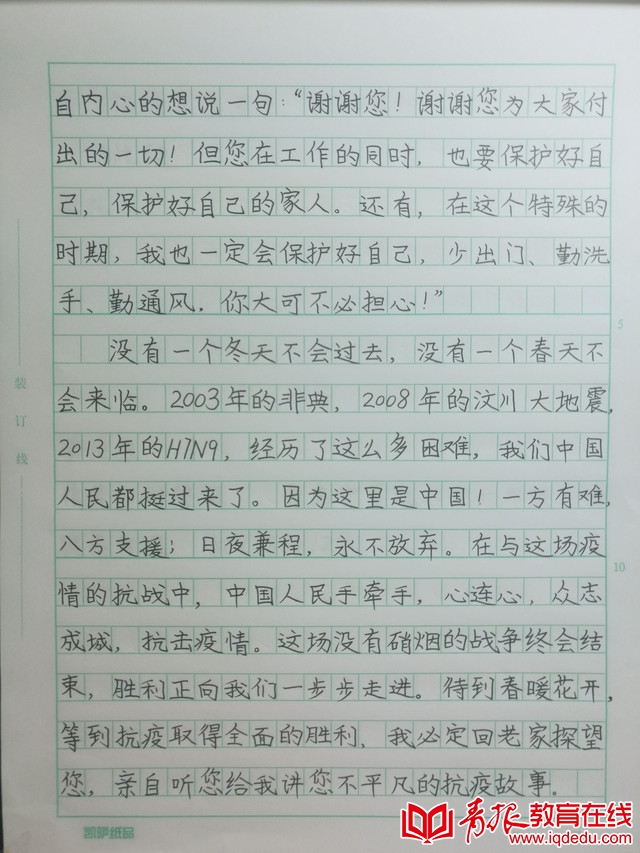 自内心的想说一句:“谢谢您！谢谢您为大家付
出的一切！但您在工作的同时，也要保护好自
己，保护好自己的家人。还有，在这个特殊的
时期，我也一定会保护好自己，少出门、勤洗
手、勤通风，你大可不必担心！”
没有一个冬天不会过去，没有一个春天不
会来临。2003年的非典，2008年的汶川大地震，
2013年的H7N9，经历了这么多困难，我们中国
人民都挺过来了。因为这里是中国！一方有难，
八方支援；日夜兼程，永不放弃。在与这场疫
情的抗战中，中国人民手牵手，心连心，众志
成城，抗击疫情。这场没有硝烟的战争终会结
束，胜利正向我们一步步走进。待到春暖花开，
等到抗疫取得全面的胜利，我必定回老家探望
您，亲自听您给我讲您不平凡的抗疫故事.
装
订
线
5
10
凯萨纸品
青报教育在线
www.iqdedu.com